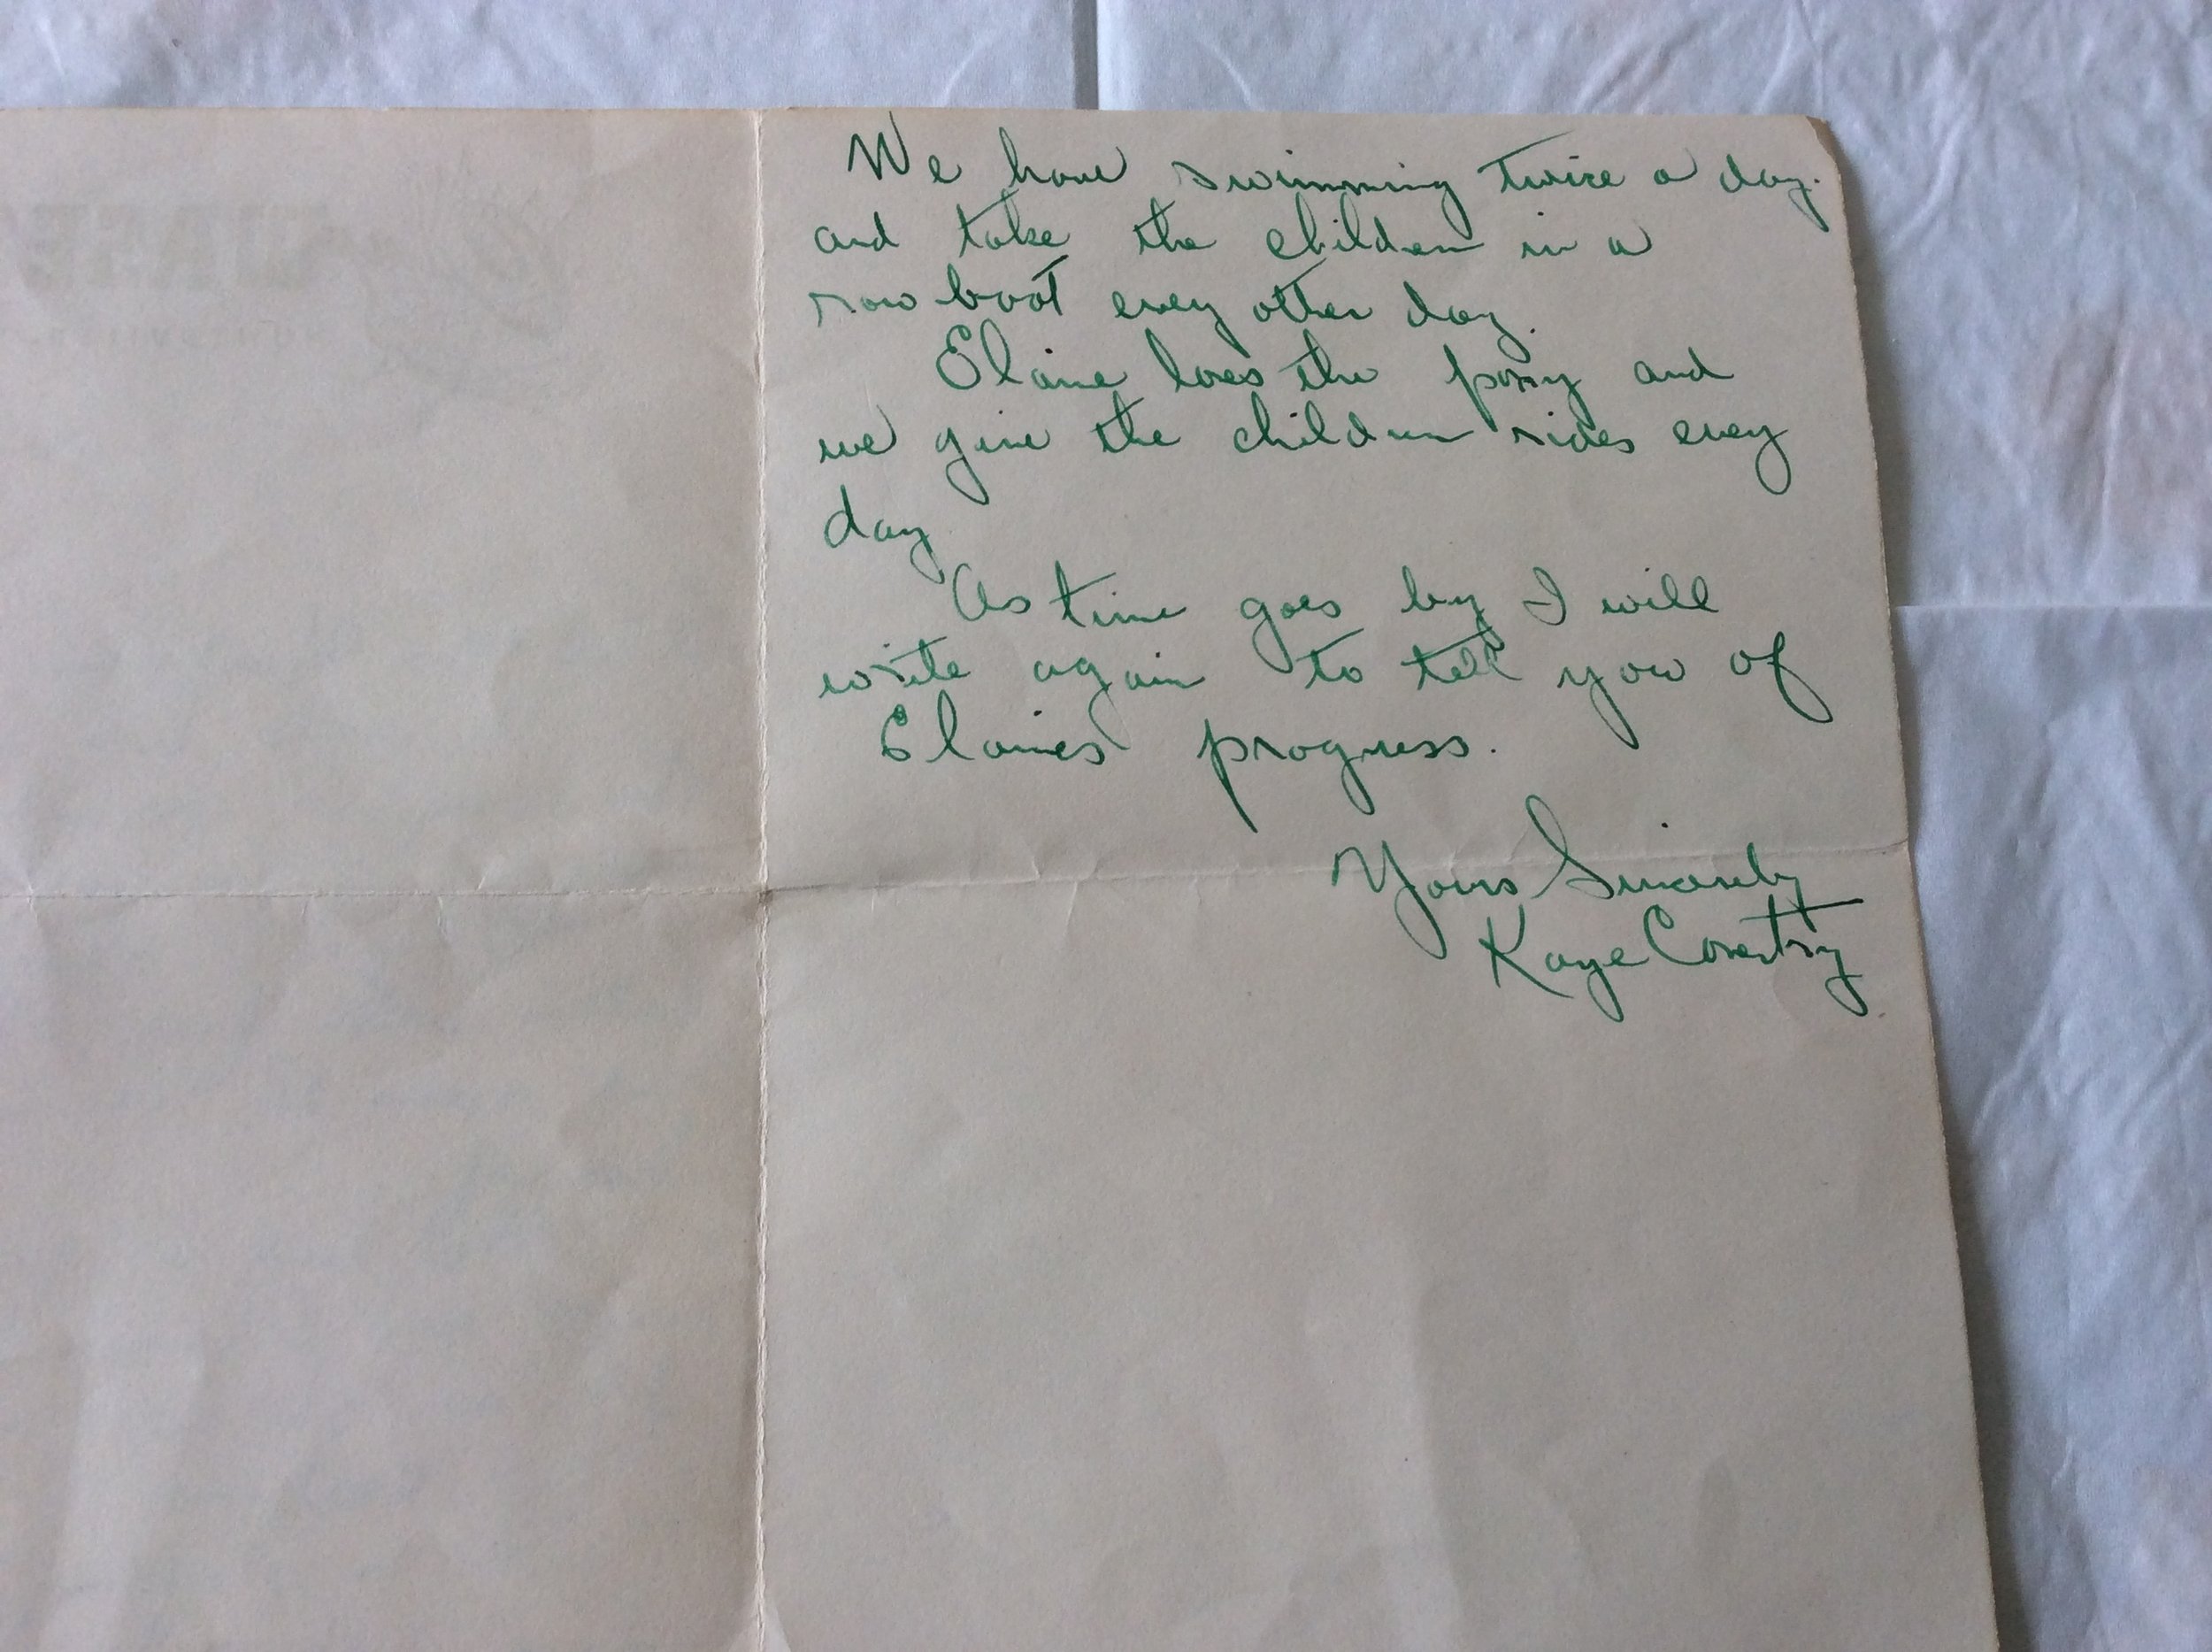 We have swimming twice a day.
and take the children in a
row boat every other day.
Elaine loves the pony and
we give the children rides every
day
As time goes by I will
write again to tell you of
Elaines progress.
Yours Sincerely
Kaye Coventry